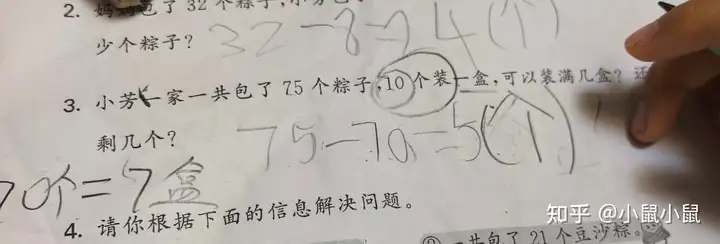 2. 妈妈包了 32 个粽子,小芳包
少个粽子? 32-8=24(个)
3. 小芳一家一共包了 75 个粽子,10个装一盒,可以装满几盒? 还
剩几个? 75-70=5(个)
70个=7盒
4. 请你根据下面的信息解决问题。
一共包了 21 个豆沙粽。
知乎 @小鼠小鼠